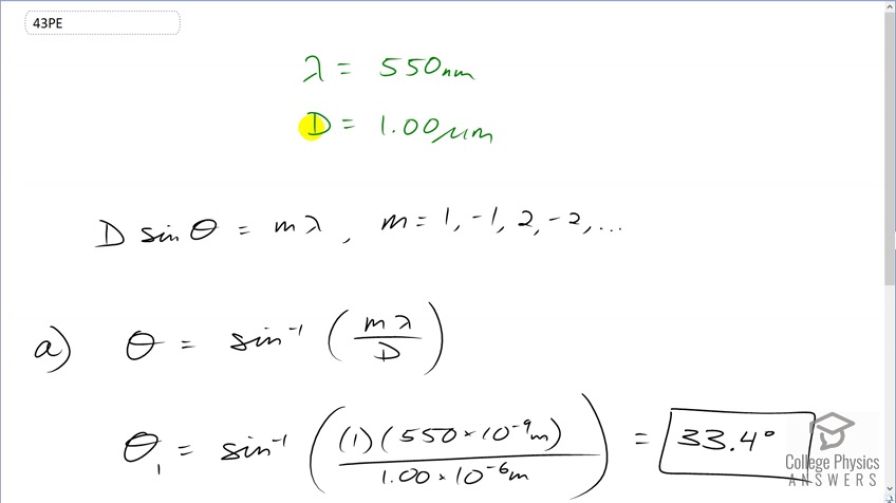 43PE
λ = 550nm
D = 1.00μm
D sin θ = mλ , m = 1, -1, 2, -2, ...
a) θ = sin⁻¹ (mλ / D)
θ₁ = sin⁻¹ ((1)(550×10⁻⁹m) / 1.00×10⁻⁶m) = 33.4°
College Physics
ANSWERS